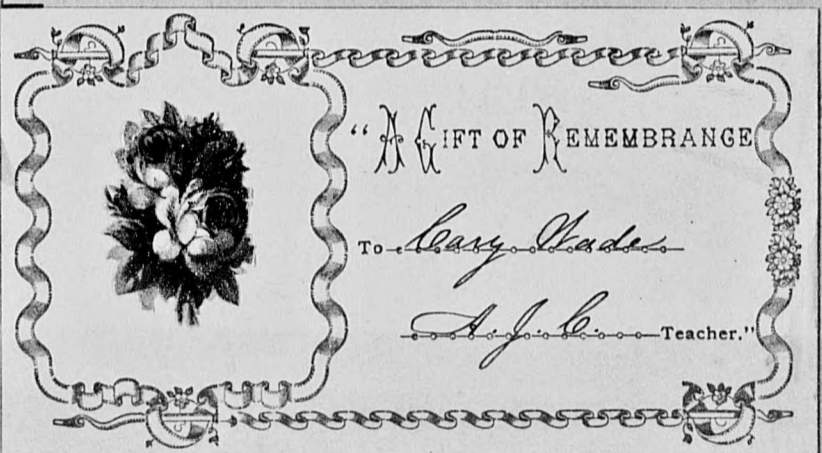 "A GIFT OF REMEMBRANCE
To Cary Wade
A. J. C. Teacher."